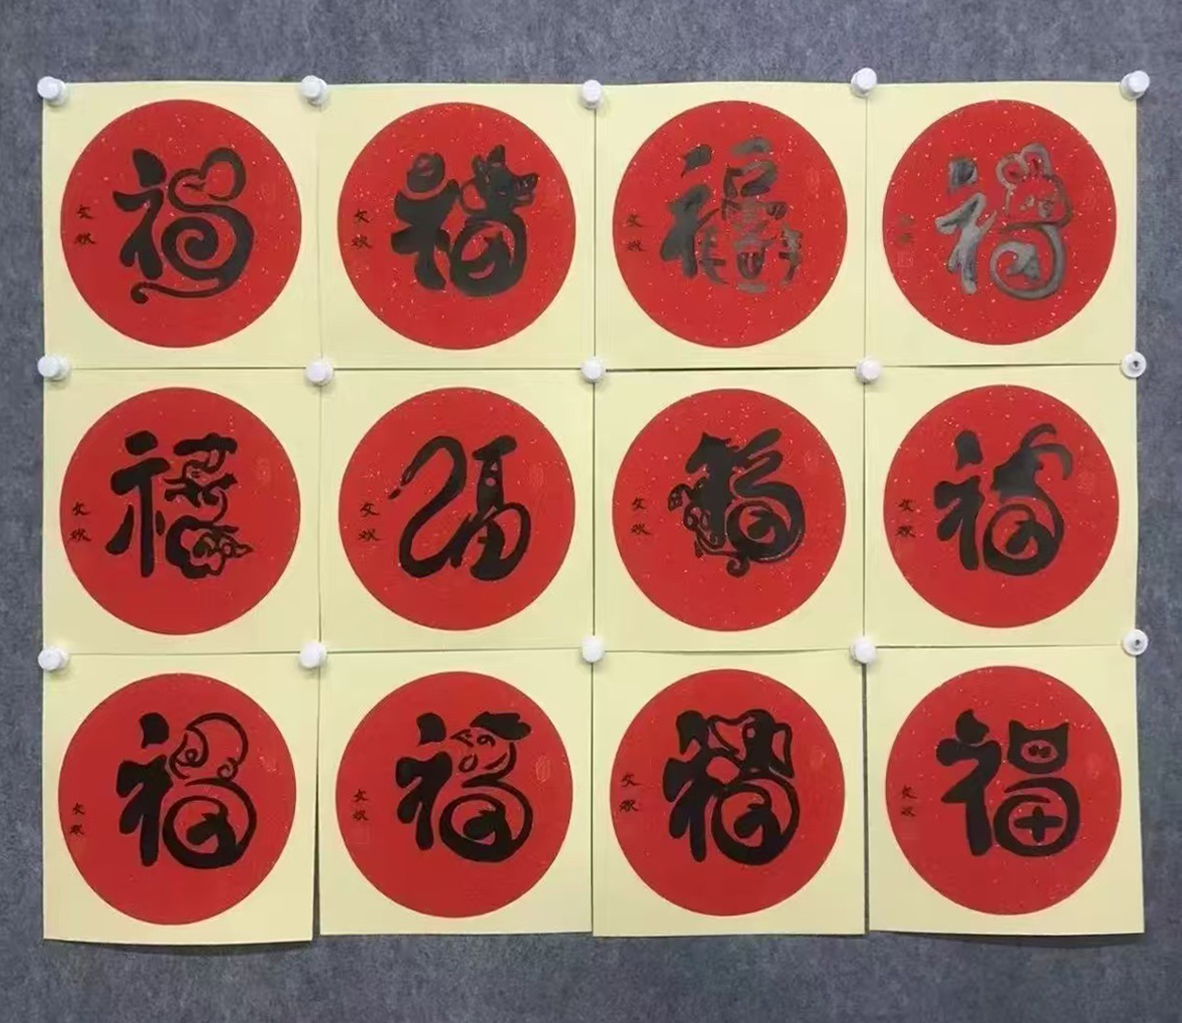 福
文欢
福
文欢
福
文欢
福
福
文欢
福
文欢
福
文欢
福
文欢
福
文欢
福
文欢
福
文欢
福
文欢